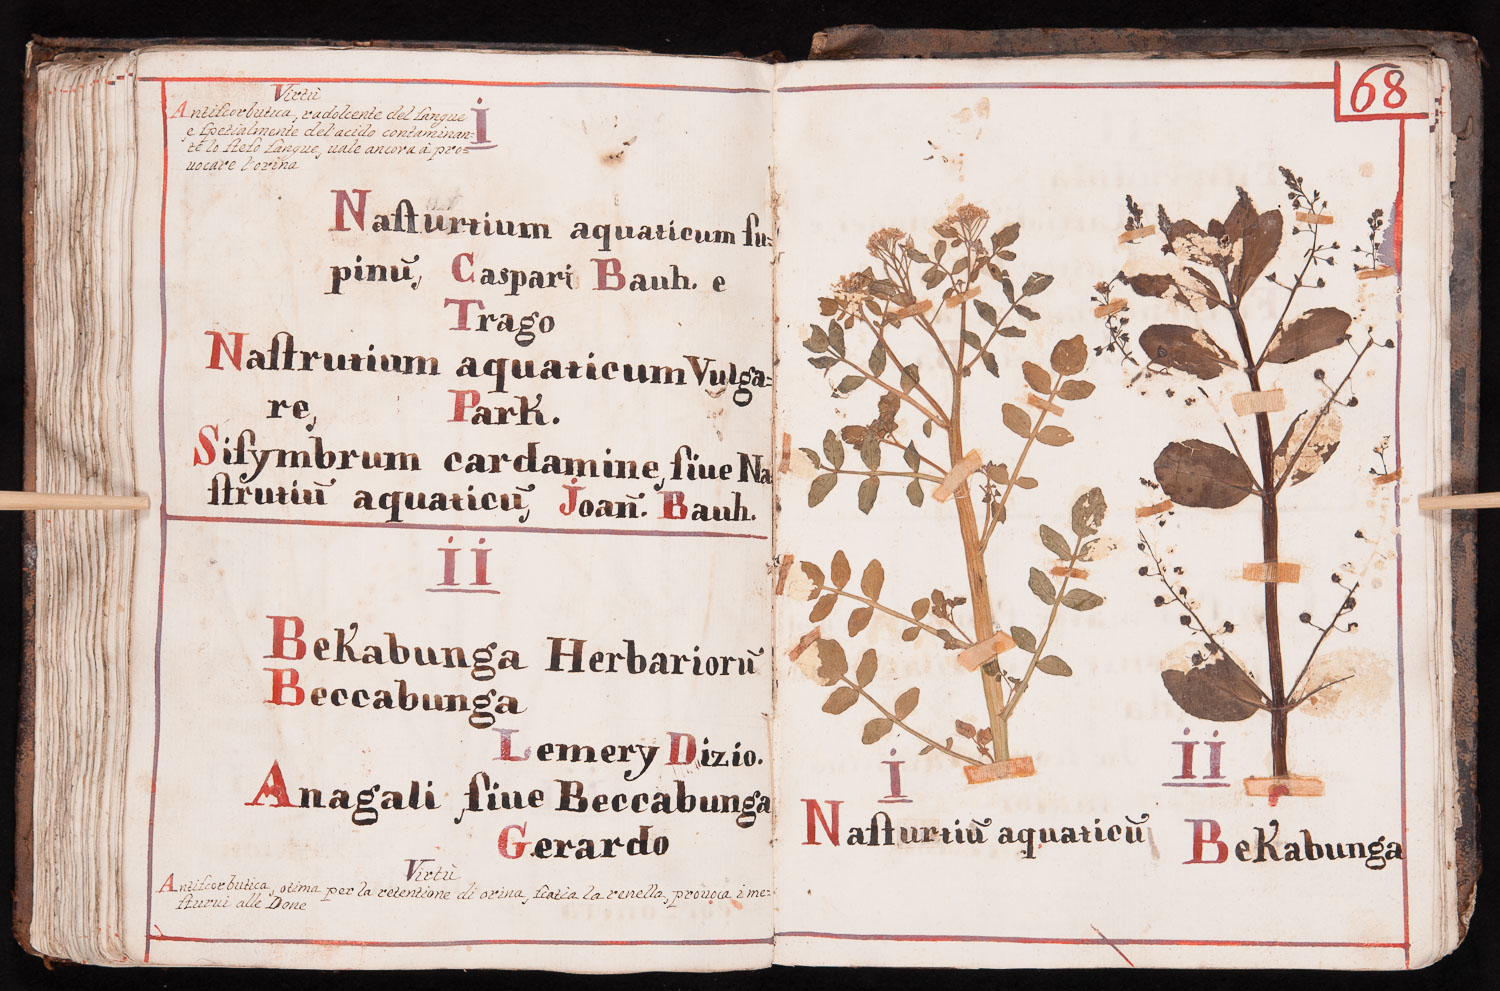 Virtù
Antiscorbutica, radolcente del sangue
e spetialmente del acido contaminan=
te lo steso sangue, uale ancora à pro=
uocare l'orina
i
Nasturtium aquaticum su=
pinũ, Caspari Bauh. e
Trago
Nastrutium aquaticum Vulga=
re, Park.
Sisymbrum cardamine, siue Na
strutiũ aquaticũ, Joañ. Bauh.
ii
Bekabunga Herbariorũ
Beccabunga
Lemery Dizio.
Anagali siue Beccabunga
Gerardo
Virtù
Antiscorbutica, otima per la retentione di orina, scatia la renella, prouoca i me=
strui alle Done
68
i
Nasturtiũ aquaticũ
ii
Bekabunga